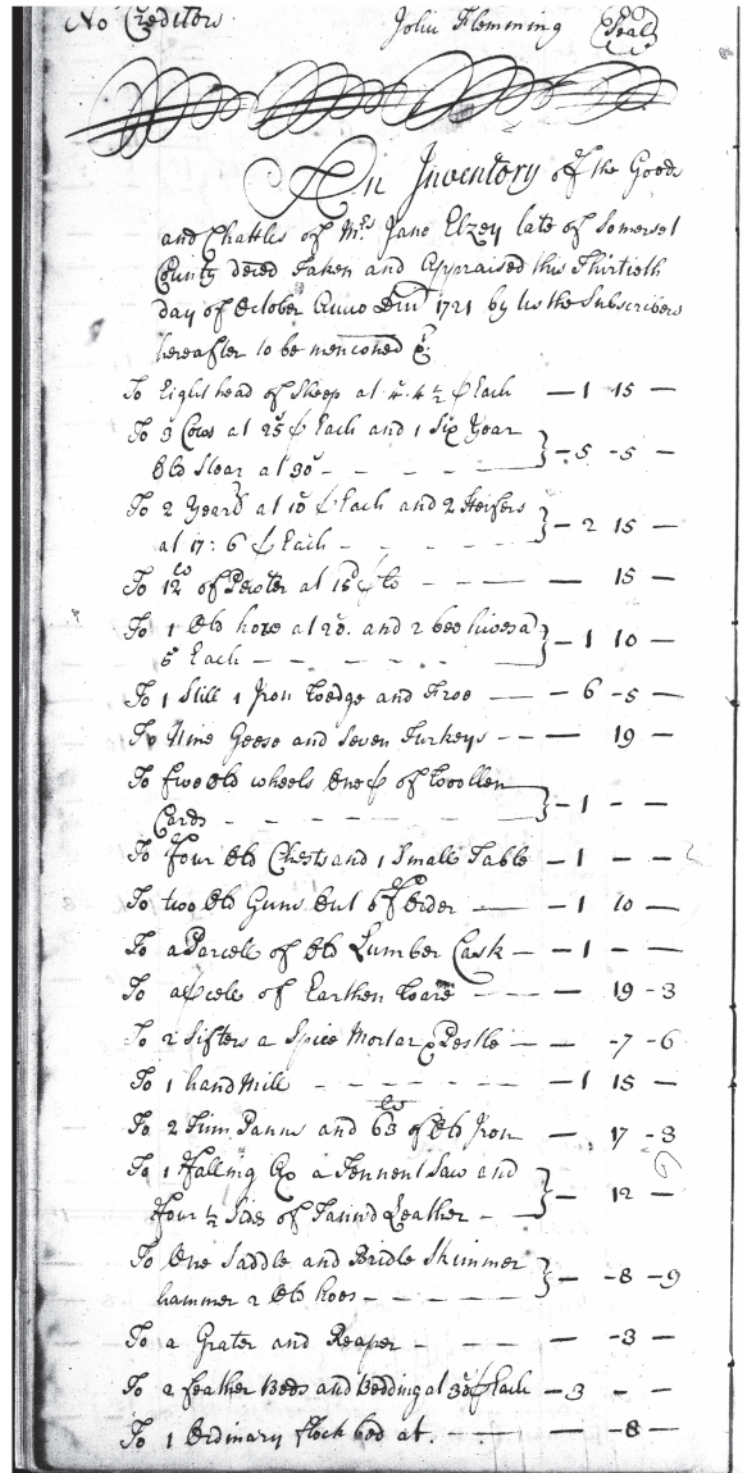 No Creditors John Flemming Seal
An Inventory of the Goods
and Chattles of Mrs Jane Elzey late of Somerset
County deced Taken and Appraised this Thirtieth
day of October Anno Dm 1721 by us the Subscribers
hereafter to be menconed &
To Eight head of Sheep at 4. 4½ ⅌ Each — 1 15 —
To 3 Cows at 25s ⅌ Each and 1 Six Year
Old Stear at 30s - - - - - 5 - 5 —
To 2 Years at 10s ⅌ Each and 2 Heifers
at 17: 6 ⅌ Each - - - - - 2 15 —
To 12lb of Pewter at 15d ⅌ lb - - - — 15 —
To 1 Old horse at 20s. and 2 bee hives a
5s Each - - - - - 1 10 —
To 1 Still 1 Iron Wedge and Froe — - 6 - 5 —
To Nine Geese and Seven Turkeys - - — 19 —
To two Old wheels One ⅌ of Woollen
Cards - - - - - - 1 - —
To four Old Chests and 1 Small Table - 1 - —
To two Old Guns Out of Order — - 1 10 —
To a Parcell of Old Lumber Cask - - 1 - —
To a ⅌cele of Earthen Ware - - — 19 - 3
To 2 Sifters a Spice Mortar & Pestle - — - 7 - 6
To 1 hand Mill - - - - - - 1 15 —
To 2 Tinn Panns and 63lb of Old Iron — 17 - 3
To 1 Falling Ax a Tennent Saw and
Four ½ Sides of Tann'd Leather - — 12 —
To One Saddle and Bridle Skimmer
hammer 2 Old hoes - - - - — - 8 - 9
To a Grater and Reaper - - - - — - 3 —
To 2 feather Beds and Bedding at 30s ⅌ Each - 3 - -
To 1 Ordinary flock bed at. - - — - 8 —